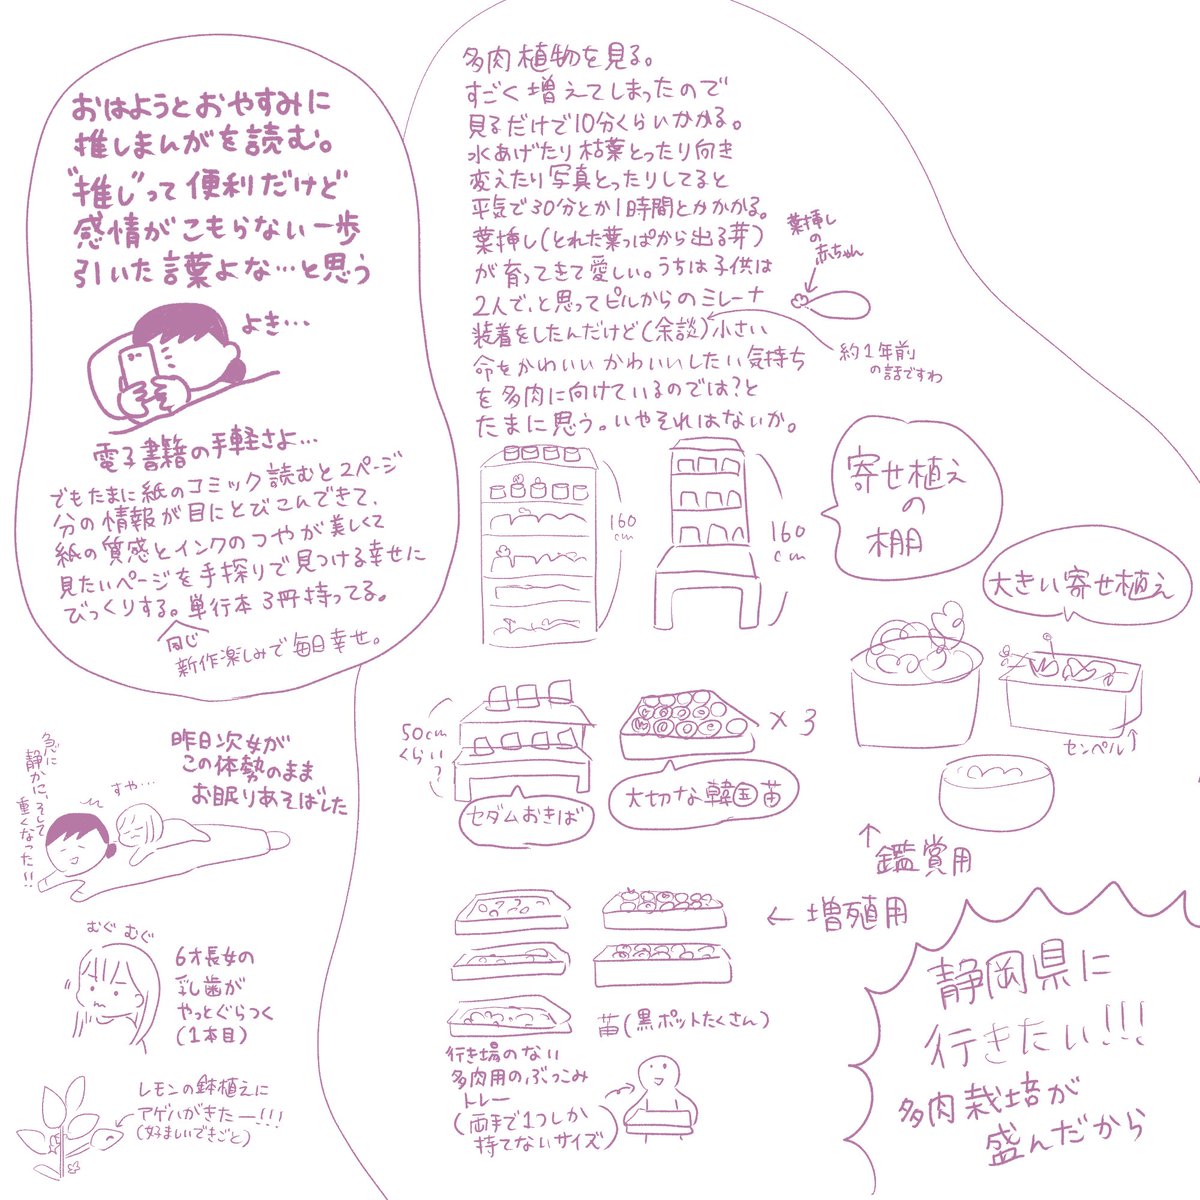 おはようとおやすみに
推しまんがを読む。
"推し"って便利だけど
感情がこもらない一歩
引いた言葉よな…と思う
よき…
電子書籍の手軽さよ…
でもたまに紙のコミック読むと2ページ
分の情報が目にとびこんできて、
紙の質感とインクのつやが美しくて
見たいページを手探りで見つける幸せに
びっくりする。単行本3冊持ってる。
同じ
新作楽しみで毎日幸せ。
多肉植物を見る。
すごく増えてしまったので
見るだけで10分くらいかかる。
水あげたり枯葉とったり向き
変えたり写真とったりしてると
平気で30分とか1時間とかかかる。
葉挿し(とれた葉っぱから出る芽)
が育ってきて愛しい。うちは子供は
2人で、と思ってピルからのミレーナ
装着をしたんだけど(余談)小さい
命をかわいいかわいいしたい気持ち
を多肉に向けているのでは?と
たまに思う。いやそれはないか。
葉挿し
の
赤ちゃん
約1年前
の話ですわ
160
cm
160
cm
寄せ植え
の
棚
大きい寄せ植え
センペル
50cm
くらい
?
セダムおきば
×3
大切な韓国苗
↑
鑑賞用
← 増殖用
苗(黒ポットたくさん)
行き場のない
多肉用のぶっこみ
トレー
(両手で1つしか
持てないサイズ)
静岡県に
行きたい!!!
多肉栽培が
盛んだから
昨日次女が
この体勢のまま
お眠りあそばした
急に
静かに、そして
重くなった!!
すや…
むぐ むぐ
6才長女の
乳歯が
やっとぐらつく
(1本目)
レモンの鉢植えに
アゲハがきたー!!!
(好ましいできごと)